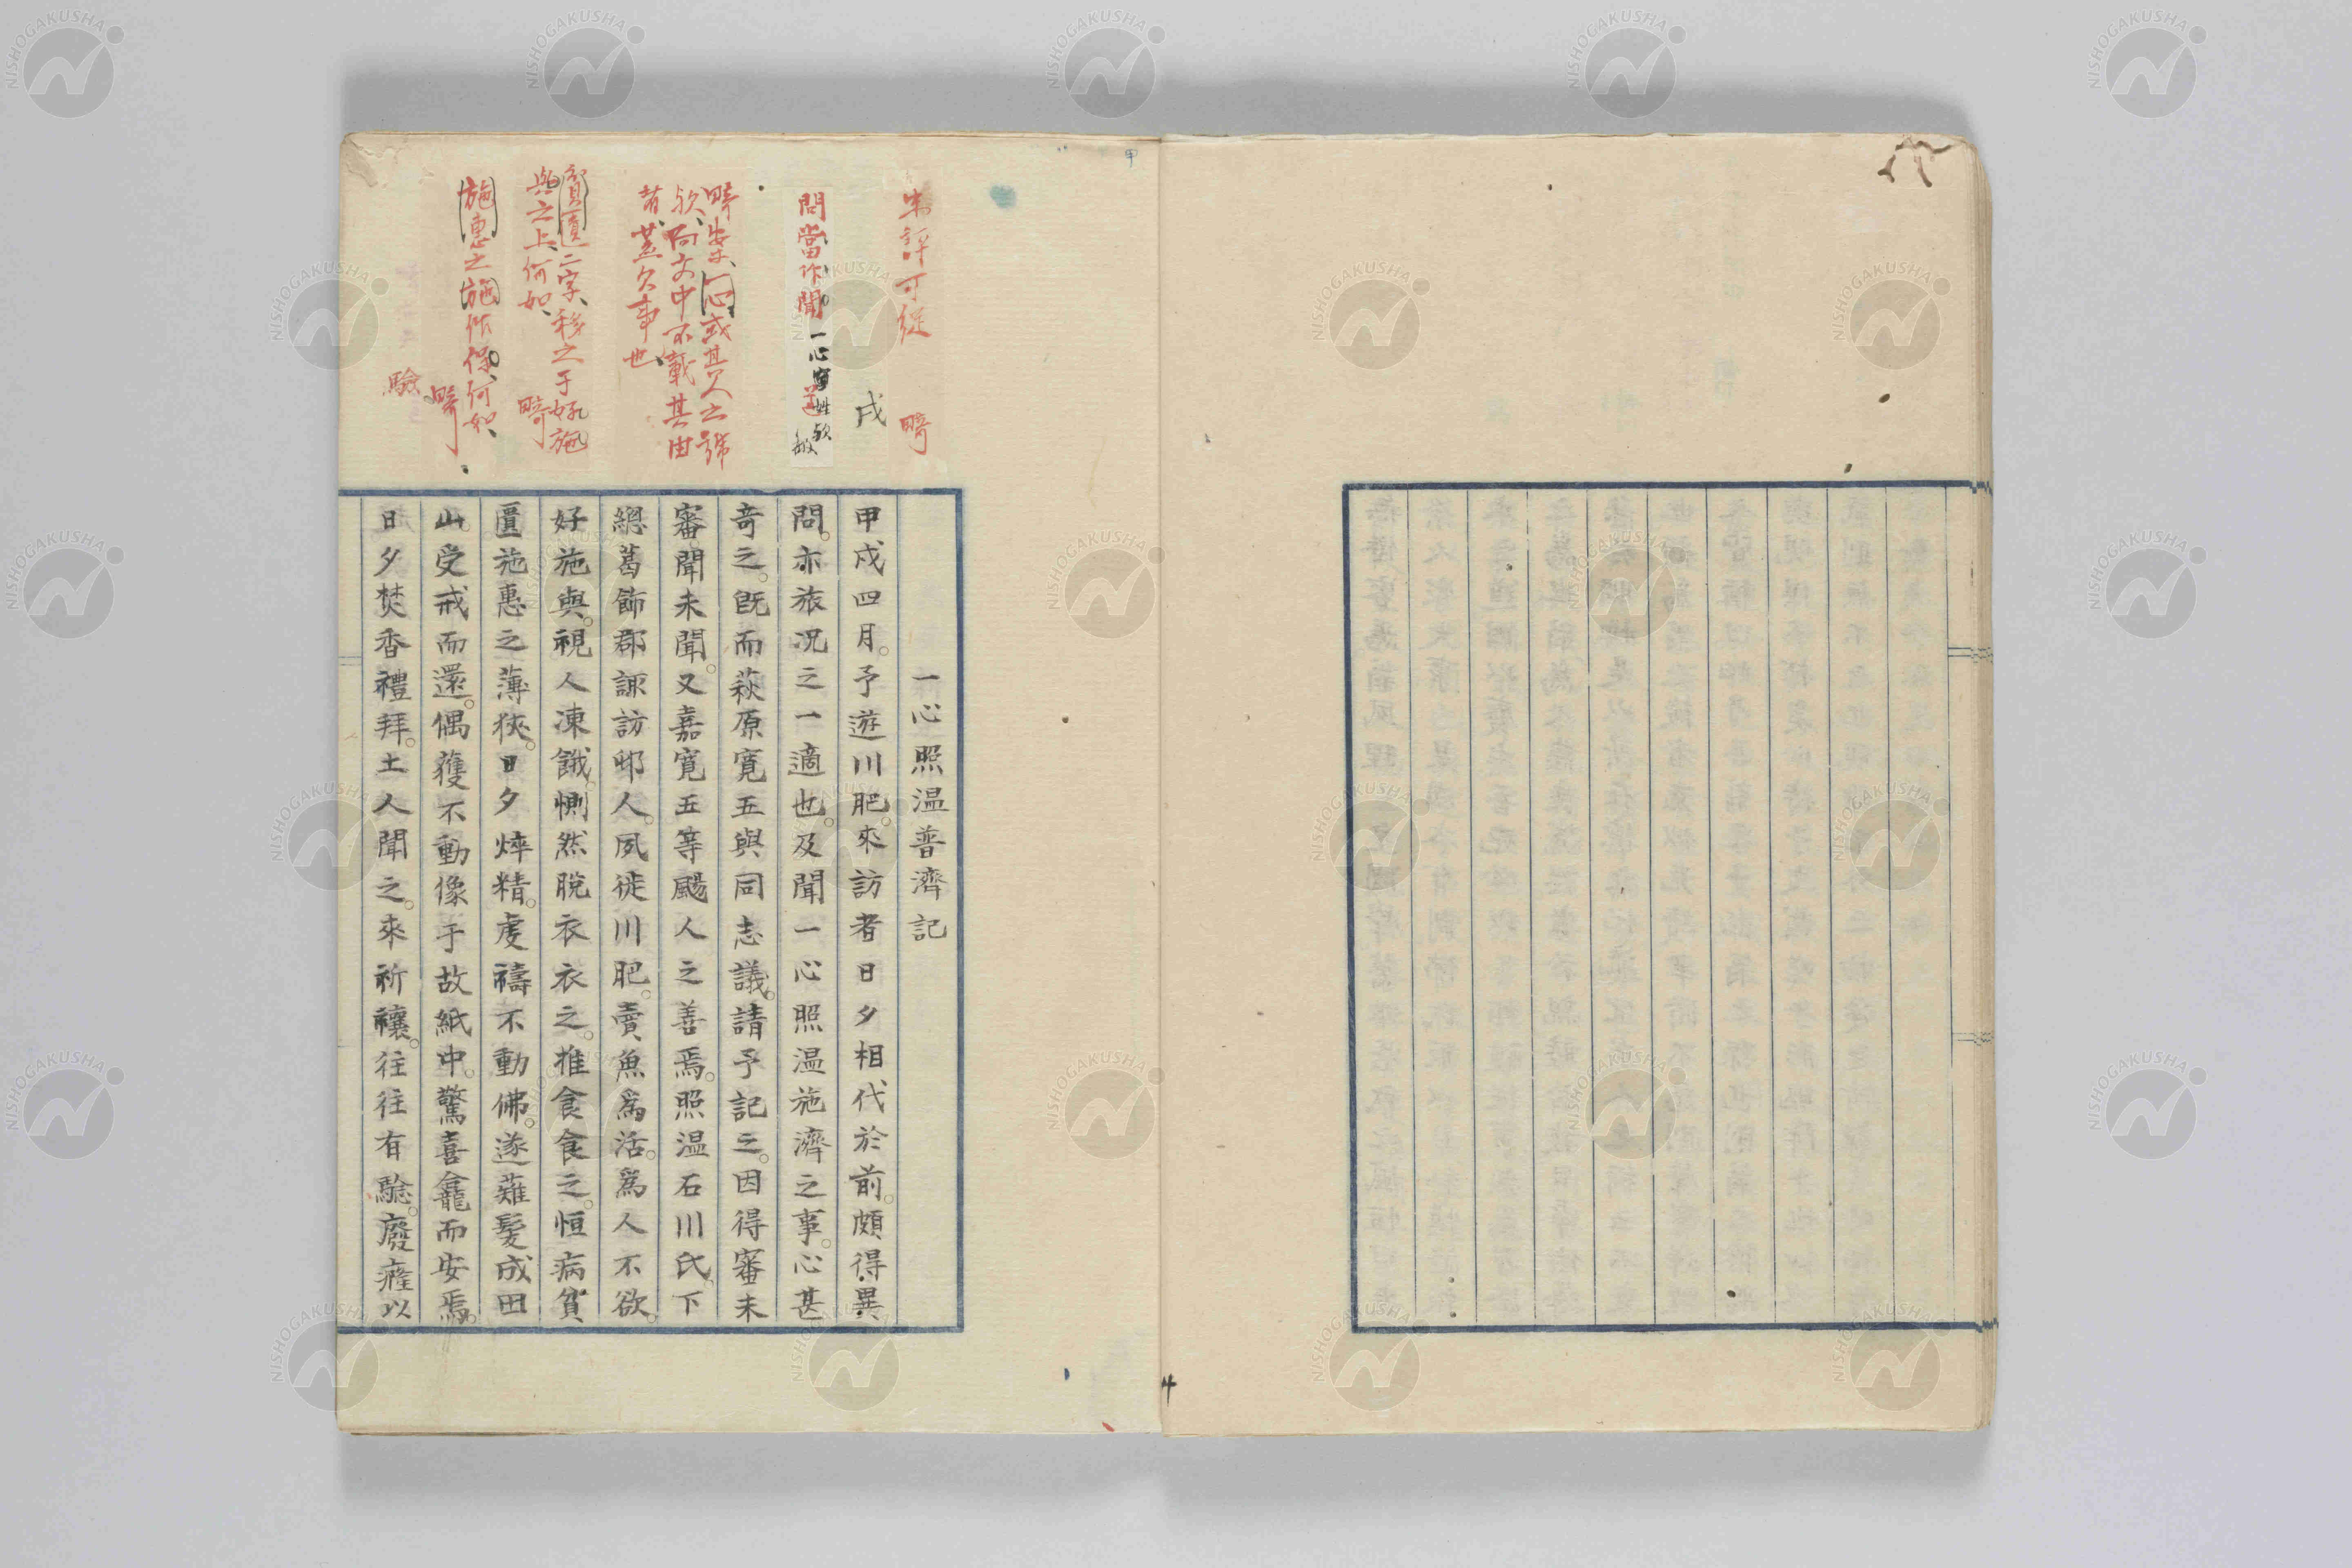 朱評可從 畸
戌
問當作聞
一心寫姓欤
敏
畸案、一心或其人之號
欤、向文中不載其由
者、蓋欠事也、
貧匱二字、移之于好施
與之上、何如、畸
施惠之施作保、何如、
畸
驗
一心照温普濟記
甲戌四月。予遊川肥。來訪者日夕相代於前。頗得異
問。亦旅況之一適也。及聞一心照温施濟之事。心甚
奇之。既而萩原寛五與同志議。請予記之。因得審未
審聞未聞。又嘉寛五等颺人之善焉。照温石川氏。下
總葛飾郡諏訪邨人。夙徙川肥。賣魚爲活。爲人不欲。
好施與。視人凍餓。惻然脫衣衣之。推食食之。恒病貧
匱施惠之薄狹。日夕焠精。虔禱不動佛。遂薙髪成田
山。受戒而還。偶獲不動像于故紙中。驚喜龕而安焉。
日夕焚香禮拜。土人聞之。來祈禳。往往有驗。廢癃以
NISHOGAKUSHA